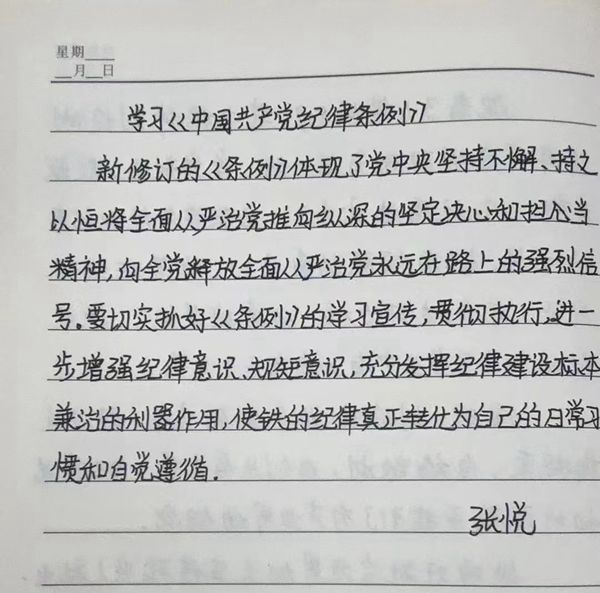 星期
月 日
学习《中国共产党纪律条例》
新修订的《条例》体现了党中央坚持不懈、持之
以恒将全面从严治党推向纵深的坚定决心和担当
精神,向全党解放全面从严治党永远在路上的强烈信
号。要切实抓好《条例》的学习宣传,贯彻执行,进一
步增强纪律意识、规矩意识,充分发挥纪律建设标本
兼治的利器作用,使铁的纪律真正转化为自己的日常习
惯和自觉遵循.
张悦